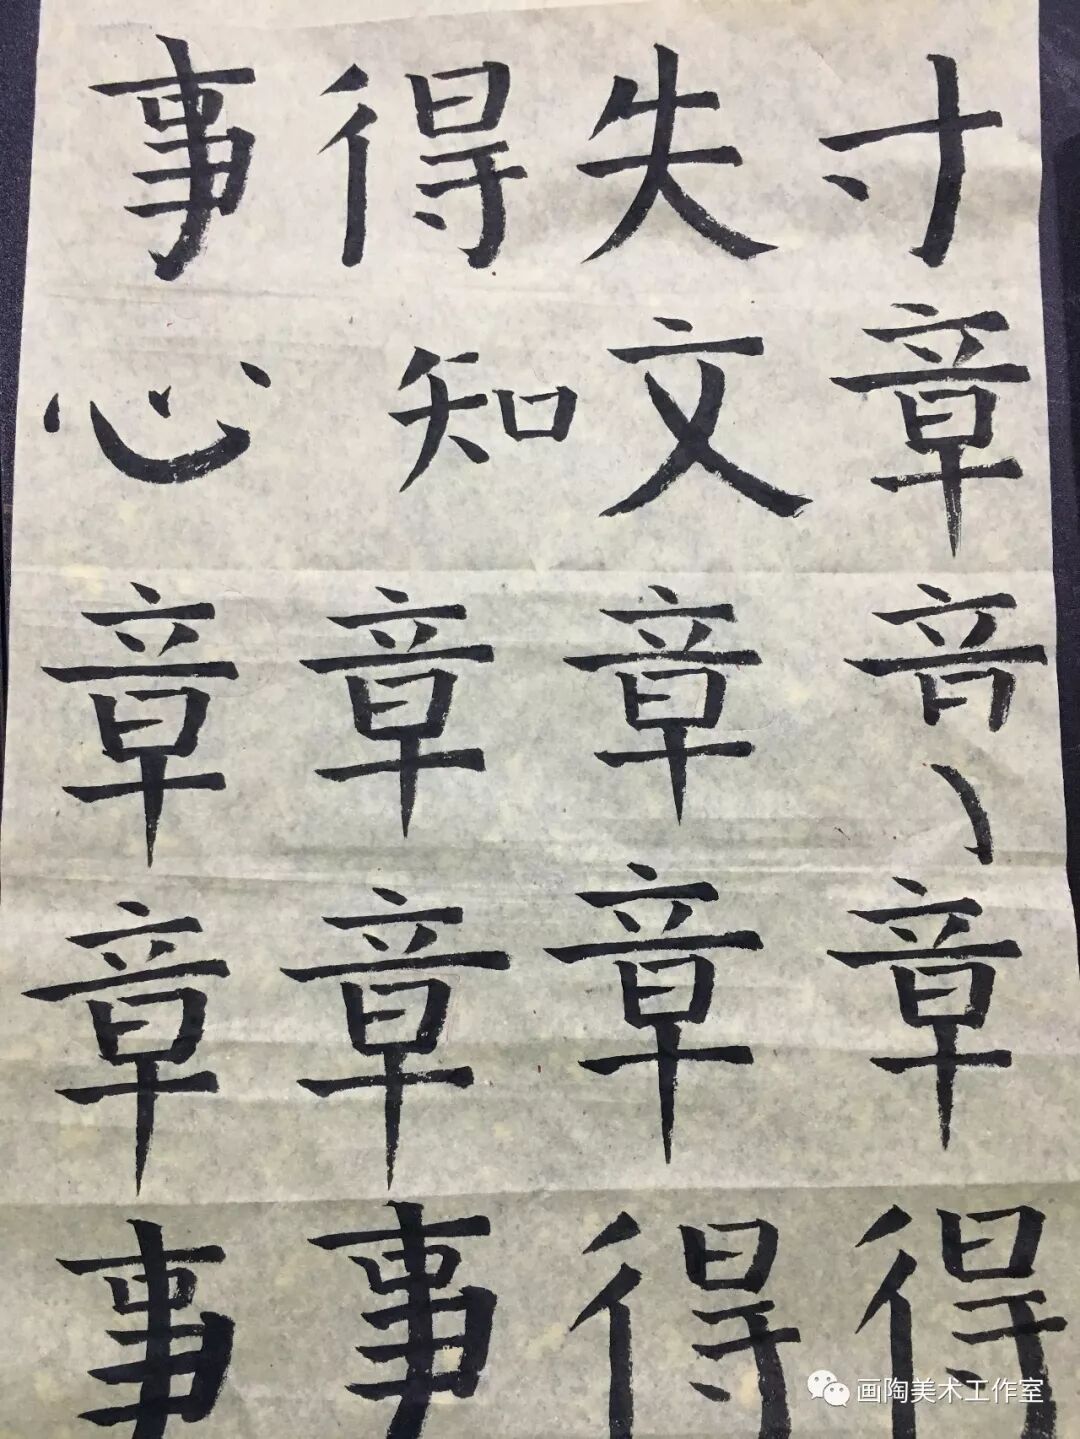 事得失寸
心知文章
章章章音
章章章章
事事得得
画陶美术工作室